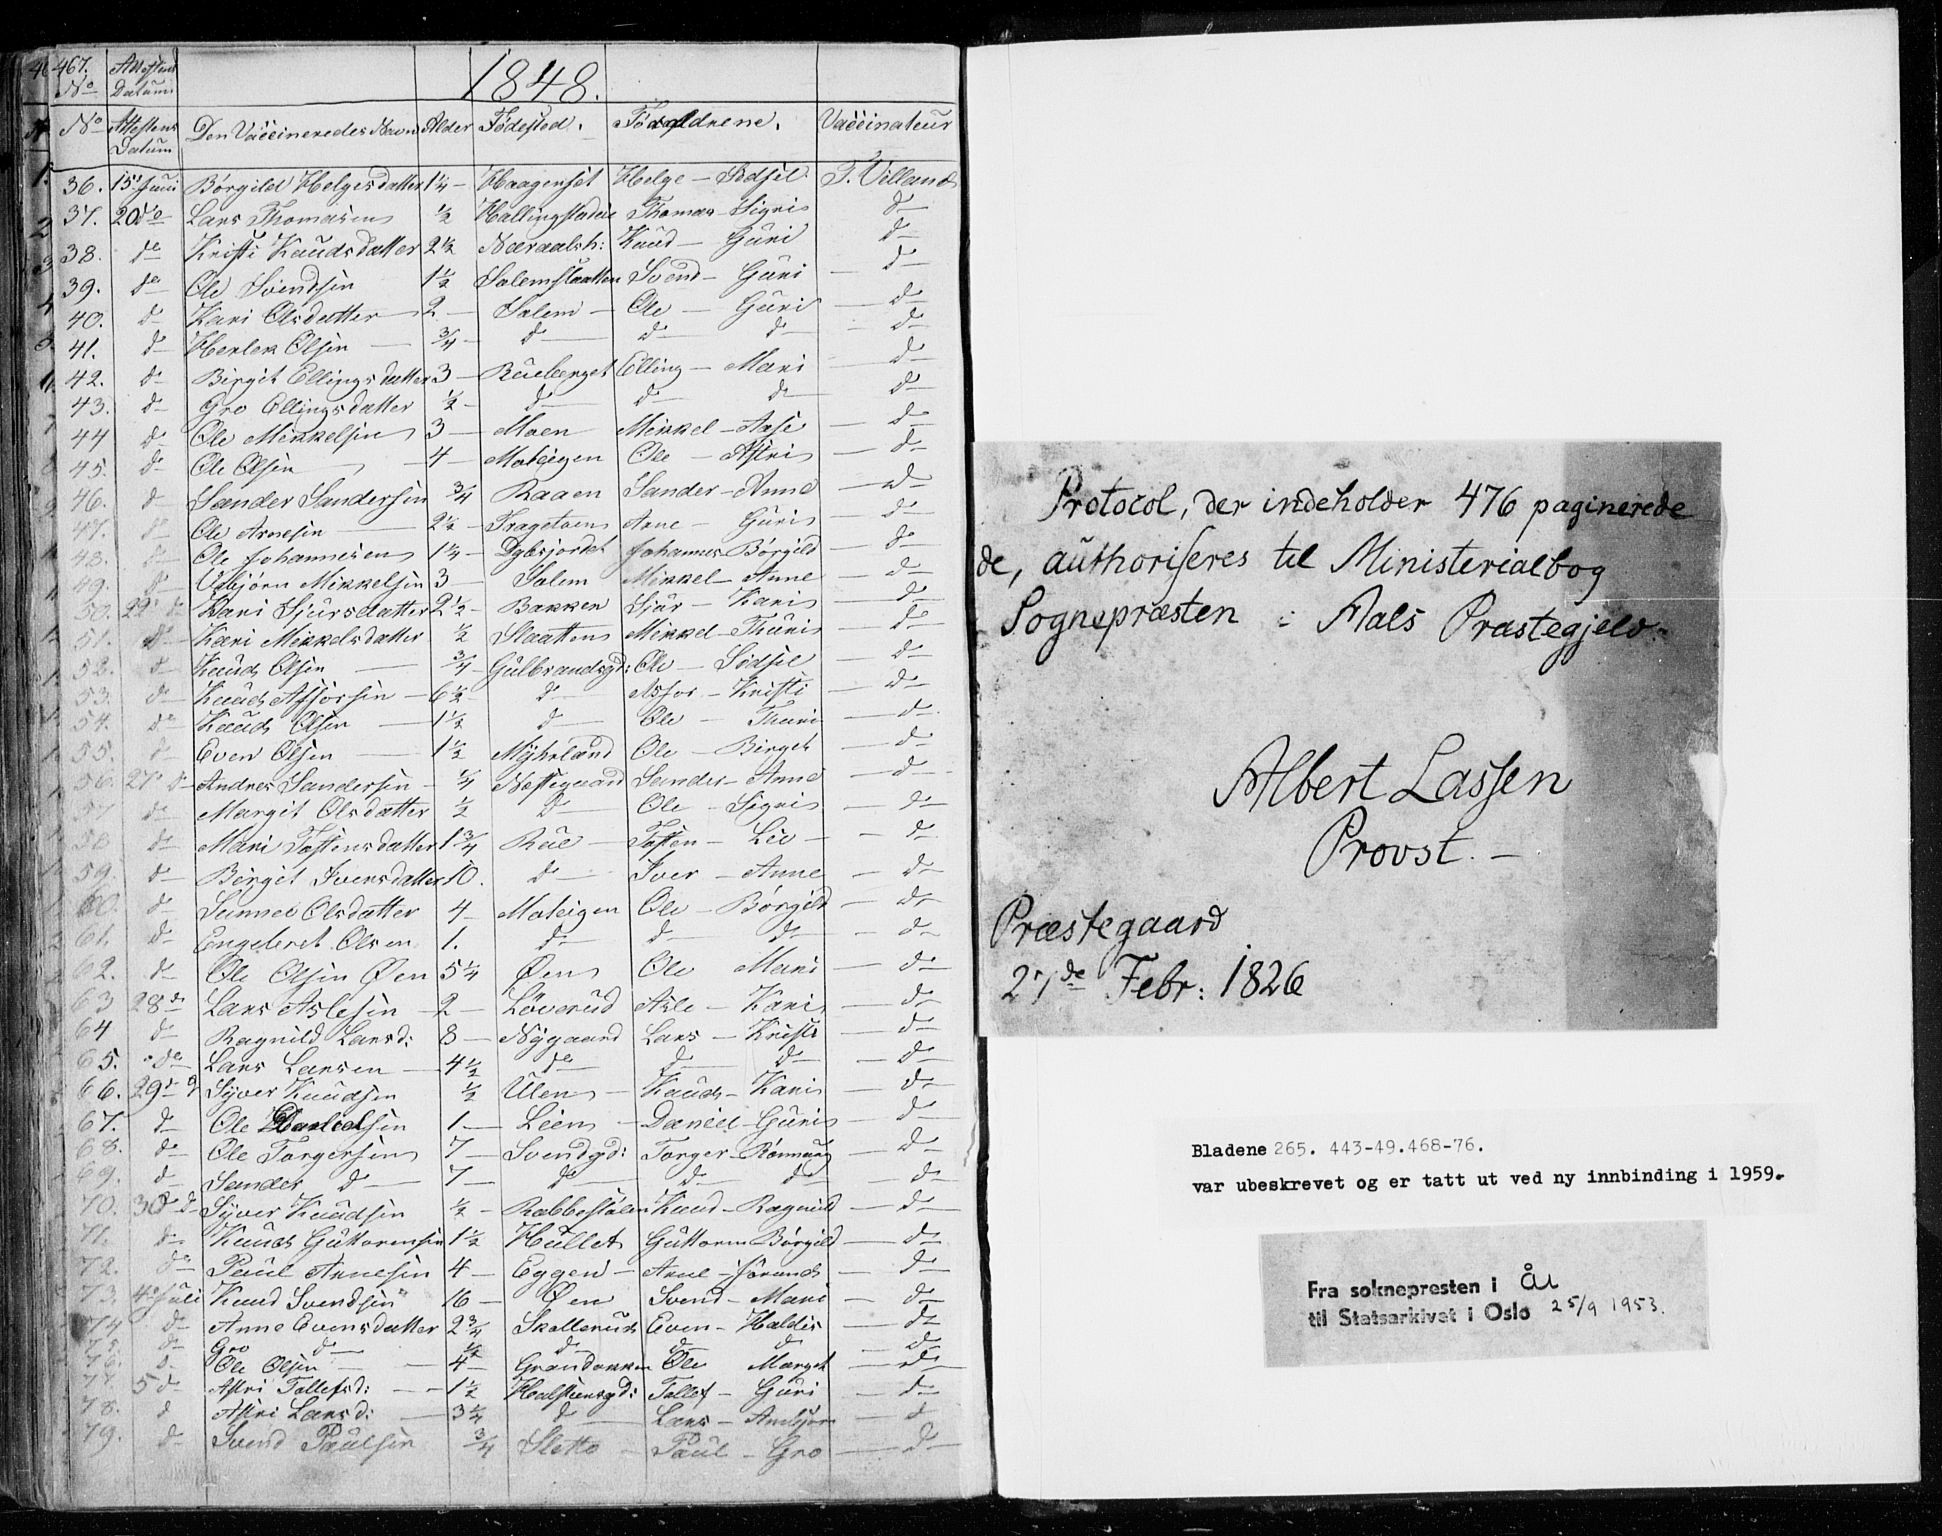 467. Attestens
No Datum
1848.
No Attestens Datum Den Vaccineredes Navn Alder Fødested. Forældrene. Vaccinateur
36. 15 Juni Børgild Helgesdatter 1¼ - Haagenset Helge - Sidsel T. Villand
37. 20 do Lars Thomasen ½ Thomas - Sigri d-
38. do Kristi Knudsdatter 2½ Knud - Guri d-
39. do Ole Svendsen 1½ Salemslaatten Svend - Guri - d-
40. d Kari Olsdatter 2 - Salem - Ole - Guri - d-
41. d- Herlek Olsen - ¾ - d- d- d- - d-
42. d- Birgit Ellingsdatter 3 - Rueberget Elling - Mari d-
43. d- Gro Ellingsdatter ½ - d- d- d- d-
44 d- Ole Mikkelsen 3 - Moen Mikkel - Aase - d-
45. d- Ole Olsen - 4 - Mateigen Ole - Astri - d-
46. d Sander Sandersen ¾ - Raaen Sander - Anne - d-
47. d- Ole Arnesen - 2½ - Arne - Guri - d-
48. d- Ole Johannesen 1¼ - Johannes Børgild - d-
49. d- Asbjørn Mikkelsen 3 - Salem Mikkel - Anne - d-
50. 22 d- Kari Sjursdatter 2½ - Bakken Sjur - Kari - d-
51. d- Kari Mikkelsdatter ½ Slaatten Mikkel - Thuri d-
52. d- Knud Olsen - ¾ - Gulbrandsgd: Ole - Sidsel - d-
53. d- Knud Assorsen - 6½ d- Assor - Kristi - d-
54. do Knud Olsen - 1½ d- Ole - Thuri - d-
55. d- Even Olsen - 1½ Myhrland Ole - Birget - d-
56. 27 d- Andres Sandersen - ¼ Nestegaard Sander - Anne - d-
57 d- Margit Olsdatter ½ D- Ole - Sigri - d-
58 d- Mari Tostensdatter 1¾ Rue - Tosten - Liv - - d-
59. d- Birgit Iversdatter 10. d- Iver - Anne - d-
60. d- Sunnev Olsdatter 4 - Mateigen Ole - Børgild - d-
61. d- Engebret Olsen 1. d- d- d- - d-
62. d- Ole Olsen Øen 5¼ Øen Ole Mari - d-
63 28 d- Lars Aslesen - 2 - Løverud Asle - Kari - d-
64 d- Ragnild Larsd: 8 - Nygaard Lars - Kristi - d-
65. do Lars Larsen - 4½ do d- d- - d-
66. 29 d Syver Knudsen ½ Ulen - Knud - Kari - d-
67. d- Ole Danielsen 1 - Lien - Daniel - Guri - d-
68. do Ole Torgersen 7 - Svendgd: Torger - Rønnaug - d-
69. d- Sander d- 7 - d- d- d- - d-
70. 30 d- Syver Knudsen ½ - Rabbestølen Knud - Ragnild - d-
71. d- Knud Guttormsen 1½ Hullet Guttorm Børgild - d-
72. do Paul Arnesen 4 - Eggen - Arne - Jørund - d-
73. 4 Juli Knud Svendsen 16 - Øen Svend - Mari - d-
74 d- Anne Evensdatter 2¾ Skallerud Even - Haldis - d-
75. d- Gro d- ½ d- d- d - d-
76. d- Ole Olsen - - 4 - Grøndokken Ole Marget - d-
77. 5 d- Astri Tollefsd: - - 1½ Halstensgd: Tollef - Guri - d-
78. d Astri Larsd: - 3¼ d- Lars - - d
79. d- Svend Paulsen ¾ Sletto - Paul - Gro - d-
Protocol, der indeholder 476 paginerede
de, authoriseres til Ministerialbog
Sognepræsten i Aals Præstegjeld.-
Albert Lassen
Provst. -
Præstegaard
27de Febr: 1826
Bladene 265. 443-49.468-76.
var ubeskrevet og er tatt ut ved ny innbinding i 1959.
Fra soknepresten i Ål
til Statsarkivet i Oslo 25/9 1953.